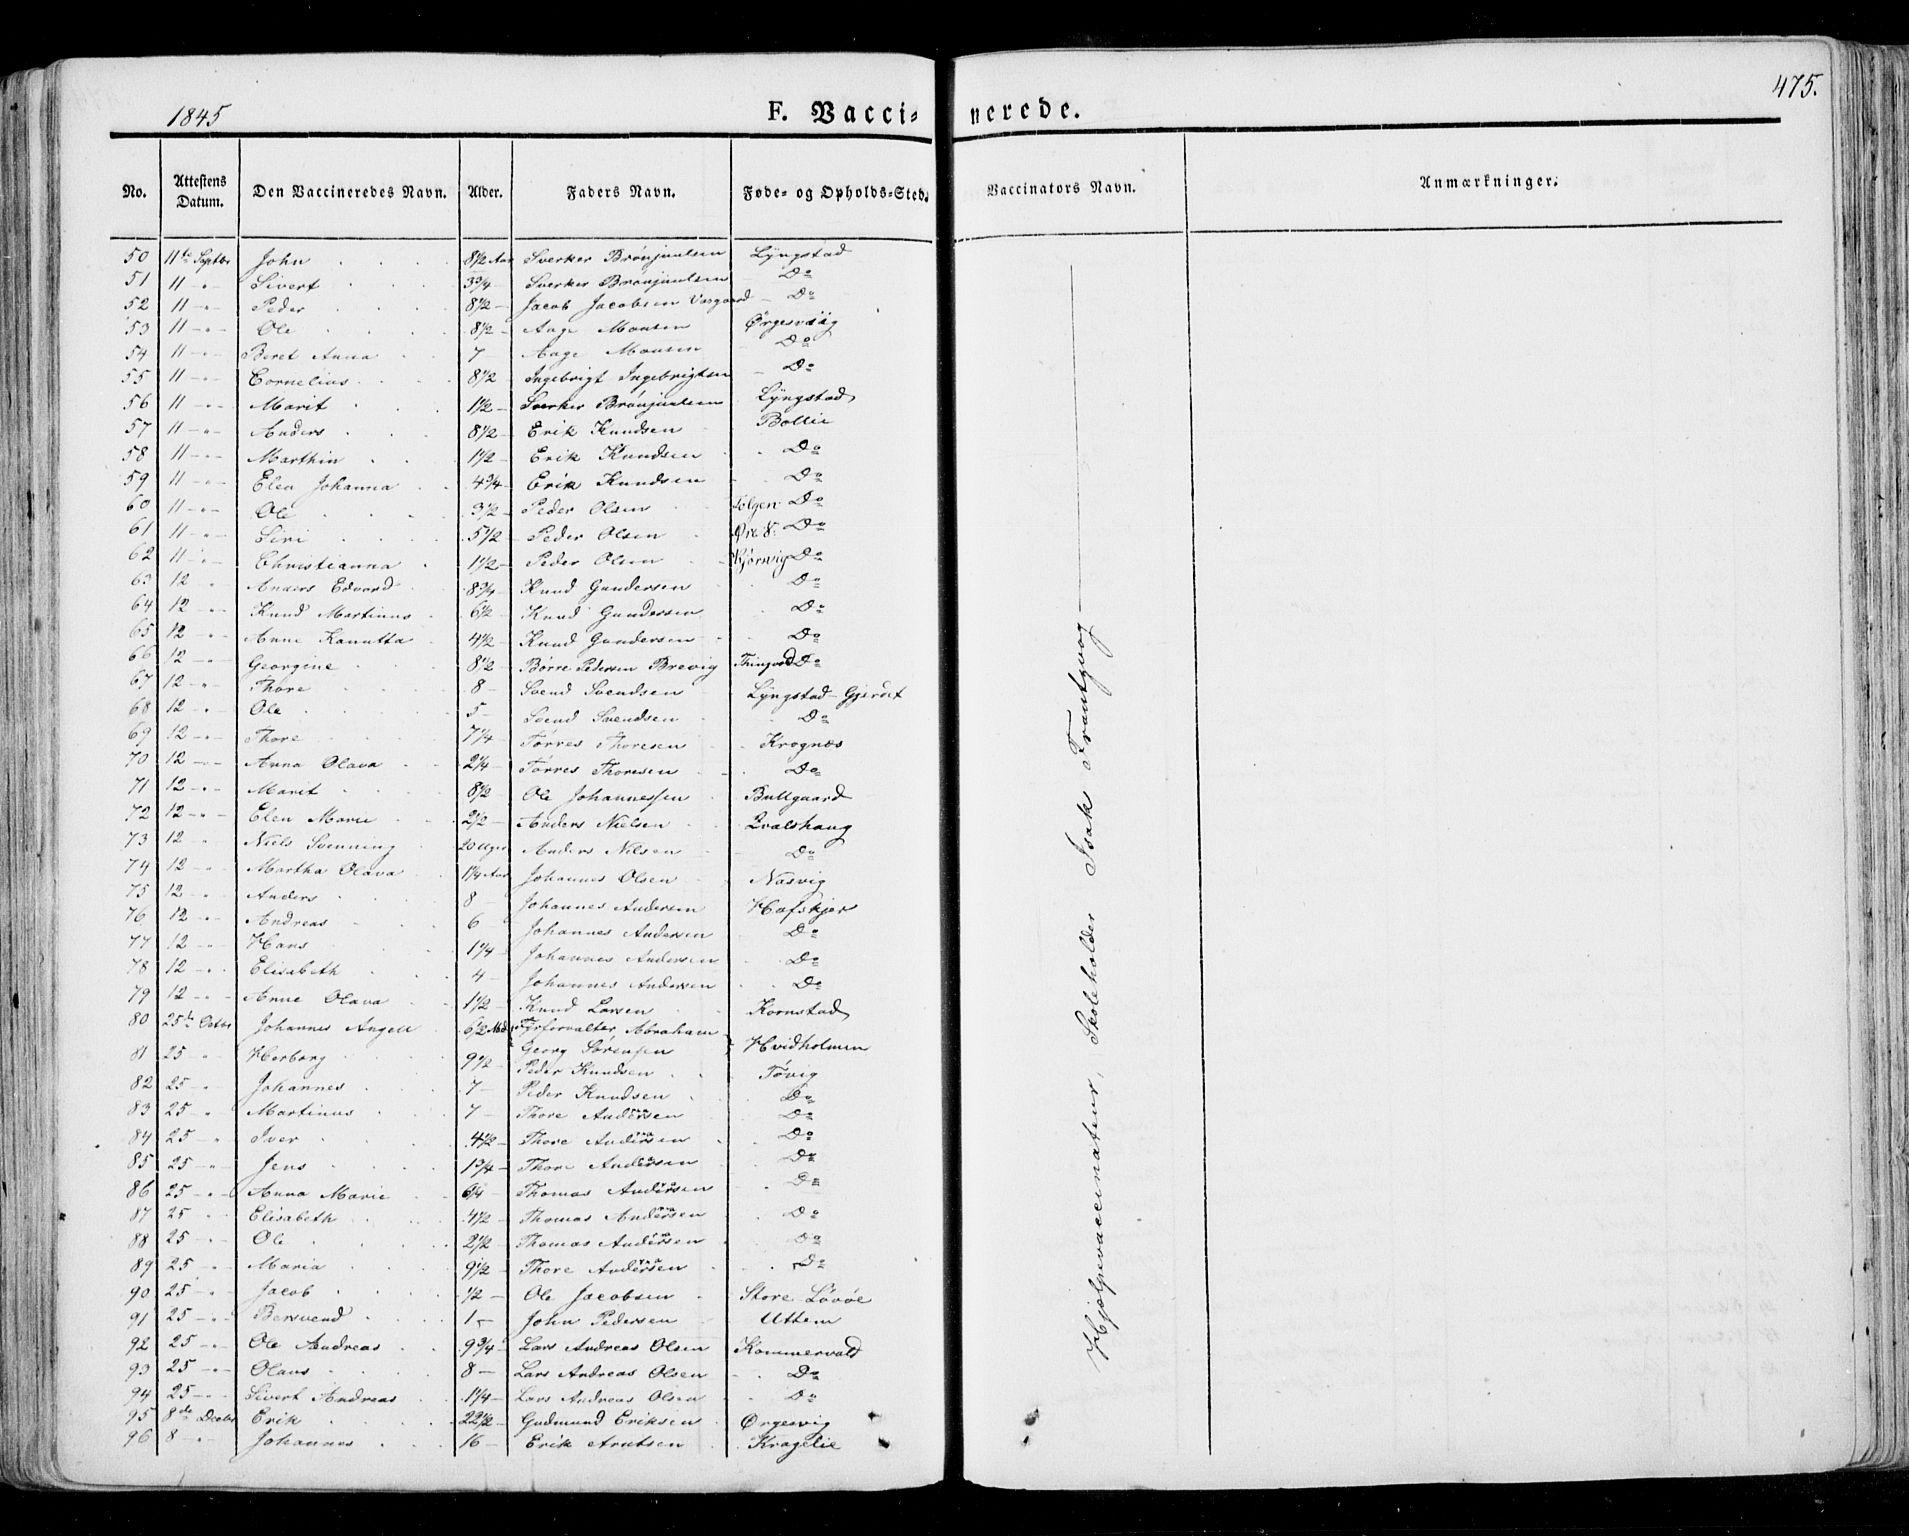 1845 F. Vacci- nerede. 475.
No. Attestens Datum. Den Vaccineredes Navn. Alder. Faders Navn. Føde- og Opholds-Sted. Vaccinators Navn. Anmærkninger.
50 11te Septbr John 8 1/2 Aar Sverker Brønjuulsen Lyngstad
51 11 - " - Sivert 3 3/4 Sverker Brønjuulsen Do
52 11 - " - Peder 8 1/2 - Jacob Jacobsen Vaagaard - Do
53 11 - " - Ole 8 1/2 - Aage Monsen Ørgesviig
54 11 - " - Beret Anna 7 - Aage Monsen Do
55 11 - " - Cornelius 8 1/2 - Ingebrigt Ingebrigtsen Do
56 11 - " - Marit 1 1/2 - Sverker Brønjuulsen Lyngstad
57 11 - " - Anders 8 1/2 - Erik Knudsen Bollie
58 11 - " - Marthin 1 1/2 - Erik Knudsen Do
59 11 - " - Elen Johanna 4 3/4 - Erik Knudsen Do
60 11 - " - Ole 3 1/2 - Peder Olsen Do
61 11 - " - Siri 5 1/2 - Peder Olsen Øre Do
62 11 - " - Christianna 1 1/2 - Peder Olsen Kjørsvig Do
63 12 " Anders Edvard 8 3/4 - Knud Gundersen Do
64 12 - " - Knud Martinus 6 1/2 - Knud Gundersen Do
65 12 - " - Anne Kanutta 4 1/2 - Knud Gundersen Do
66 12 - " - Georgine 8 1/2 - Børre Pedersen Brevig Thingvold Do
67 12 - " - Thore 8 - Svend Svendsen Lyngstad-Gjerdet
68 12 - " - Ole 5 - Svend Svendsen Do
69 12 - " - Thore 7 1/4 - Tørres Thoresen Krognæs
70 12 - " - Anna Olava 2 1/4 - Tørres Thoresen Do
71 12 - " - Marit 8 1/2 - Ole Johannessen Bullgaard
72 12 - " - Elen Marie 2 1/2 - Anders Nielsen Qvalshaug
73 12 " Niels Svenning 20 Uger Anders Nilsen Do
74 12 - " - Martha Olava 1 1/4 Aar Johannes Olsen Næsvig
75 12 - " - Anders 8 - Johannes Andersen Hafskjer
76 12 - " - Andreas 6 - Johannes Andersen Do
77 12 - " - Hans 1 1/4 - Johannes Andersen Do
78 12 - " - Elisabeth 4 - Johannes Andersen Do
79 12 - " - Anne Olava 1 1/2 - Knud Larsen Kornstad
80 25de Octbr Johannes Angell 6 1/2 Md Fyrforvalter Abraham
Georg Sørensen } Hvidholmen
81 25 - " Herborg 9 1/2 - Peder Knudsen Tøvig
82 25 - " Johannes 7 - Peder Knudsen Do
83 25 " Martinus 7 - Thore Andersen Do
84 25 - " Iver 4 1/2 - Thore Andersen Do
85 25 - " - Jens 1 3/4 - Thore Andersen Do
86 25 - " - Anna Marie 6/4 - Thomas Andersen Do
87 25 " - Elisabeth 4 1/2 - Thomas Andersen Do
88 25 - " - Ole 2 1/2 - Thomas Andersen Do
89 25 - " - Maria 9 1/2 - Thore Andersen Do
90 25 - " - Jacob 1/2 - Ole Jacobsen Store Løvøe
91 25 - " - Bersvend 1 - John Pedersen Uthem
92 25 - " - Ole Andreas 9 3/4 - Lars Andreas Olsen Kammervold
93 25 - " - Olaus 8 - Lars Andreas Olsen Do
94 25 - " - Sivert Andreas 1 1/4 - Lars Andreas Olsen Do
95 8de Decbr Erik 22 1/2 - Gudmund Eriksen Ørgesvig
96 8 - " - Johannes 16 - Erik Arntsen Kragelie
Hjelpevaccinateur, Skoleholder Isak Frantzvog